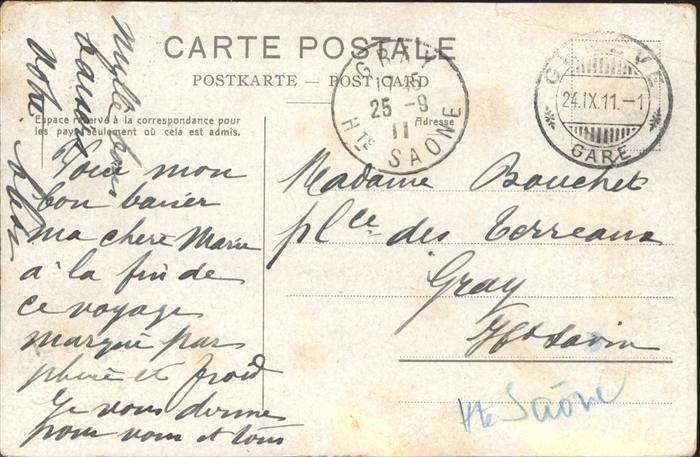 CARTE POSTALE
POSTKARTE — POST CARD
Espace réservé à la correspondance pour
les pays seulement où cela est admis.
Adresse
GRAY
25 -9
11
HTE SAONE
GENÈVE
24.IX.11.-1
GARE
Pour mon
bon baiser
ma chère Marie
à la fin de
ce voyage
marqué par
pluie et froid
Je vous donne
pour vous et tous
Mille bons
baisers
Votre
Madame Bouchet
plce des Terreaux
Gray
Hte Saône